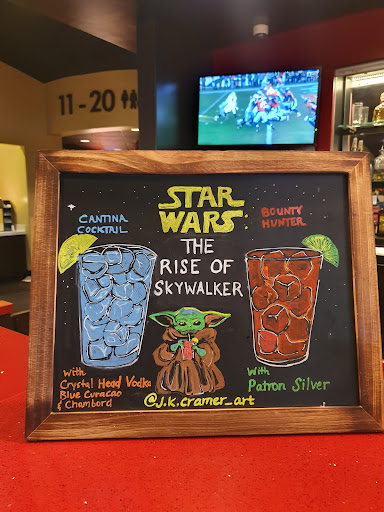 11-20
STAR
WARS
THE
RISE OF
SKYWALKER
CANTINA
COCKTAIL
With
Crystal Head Vodka
Blue Curacao
& Chambord
BOUNTY
HUNTER
With
Patron Silver
@j.k.cramer_art